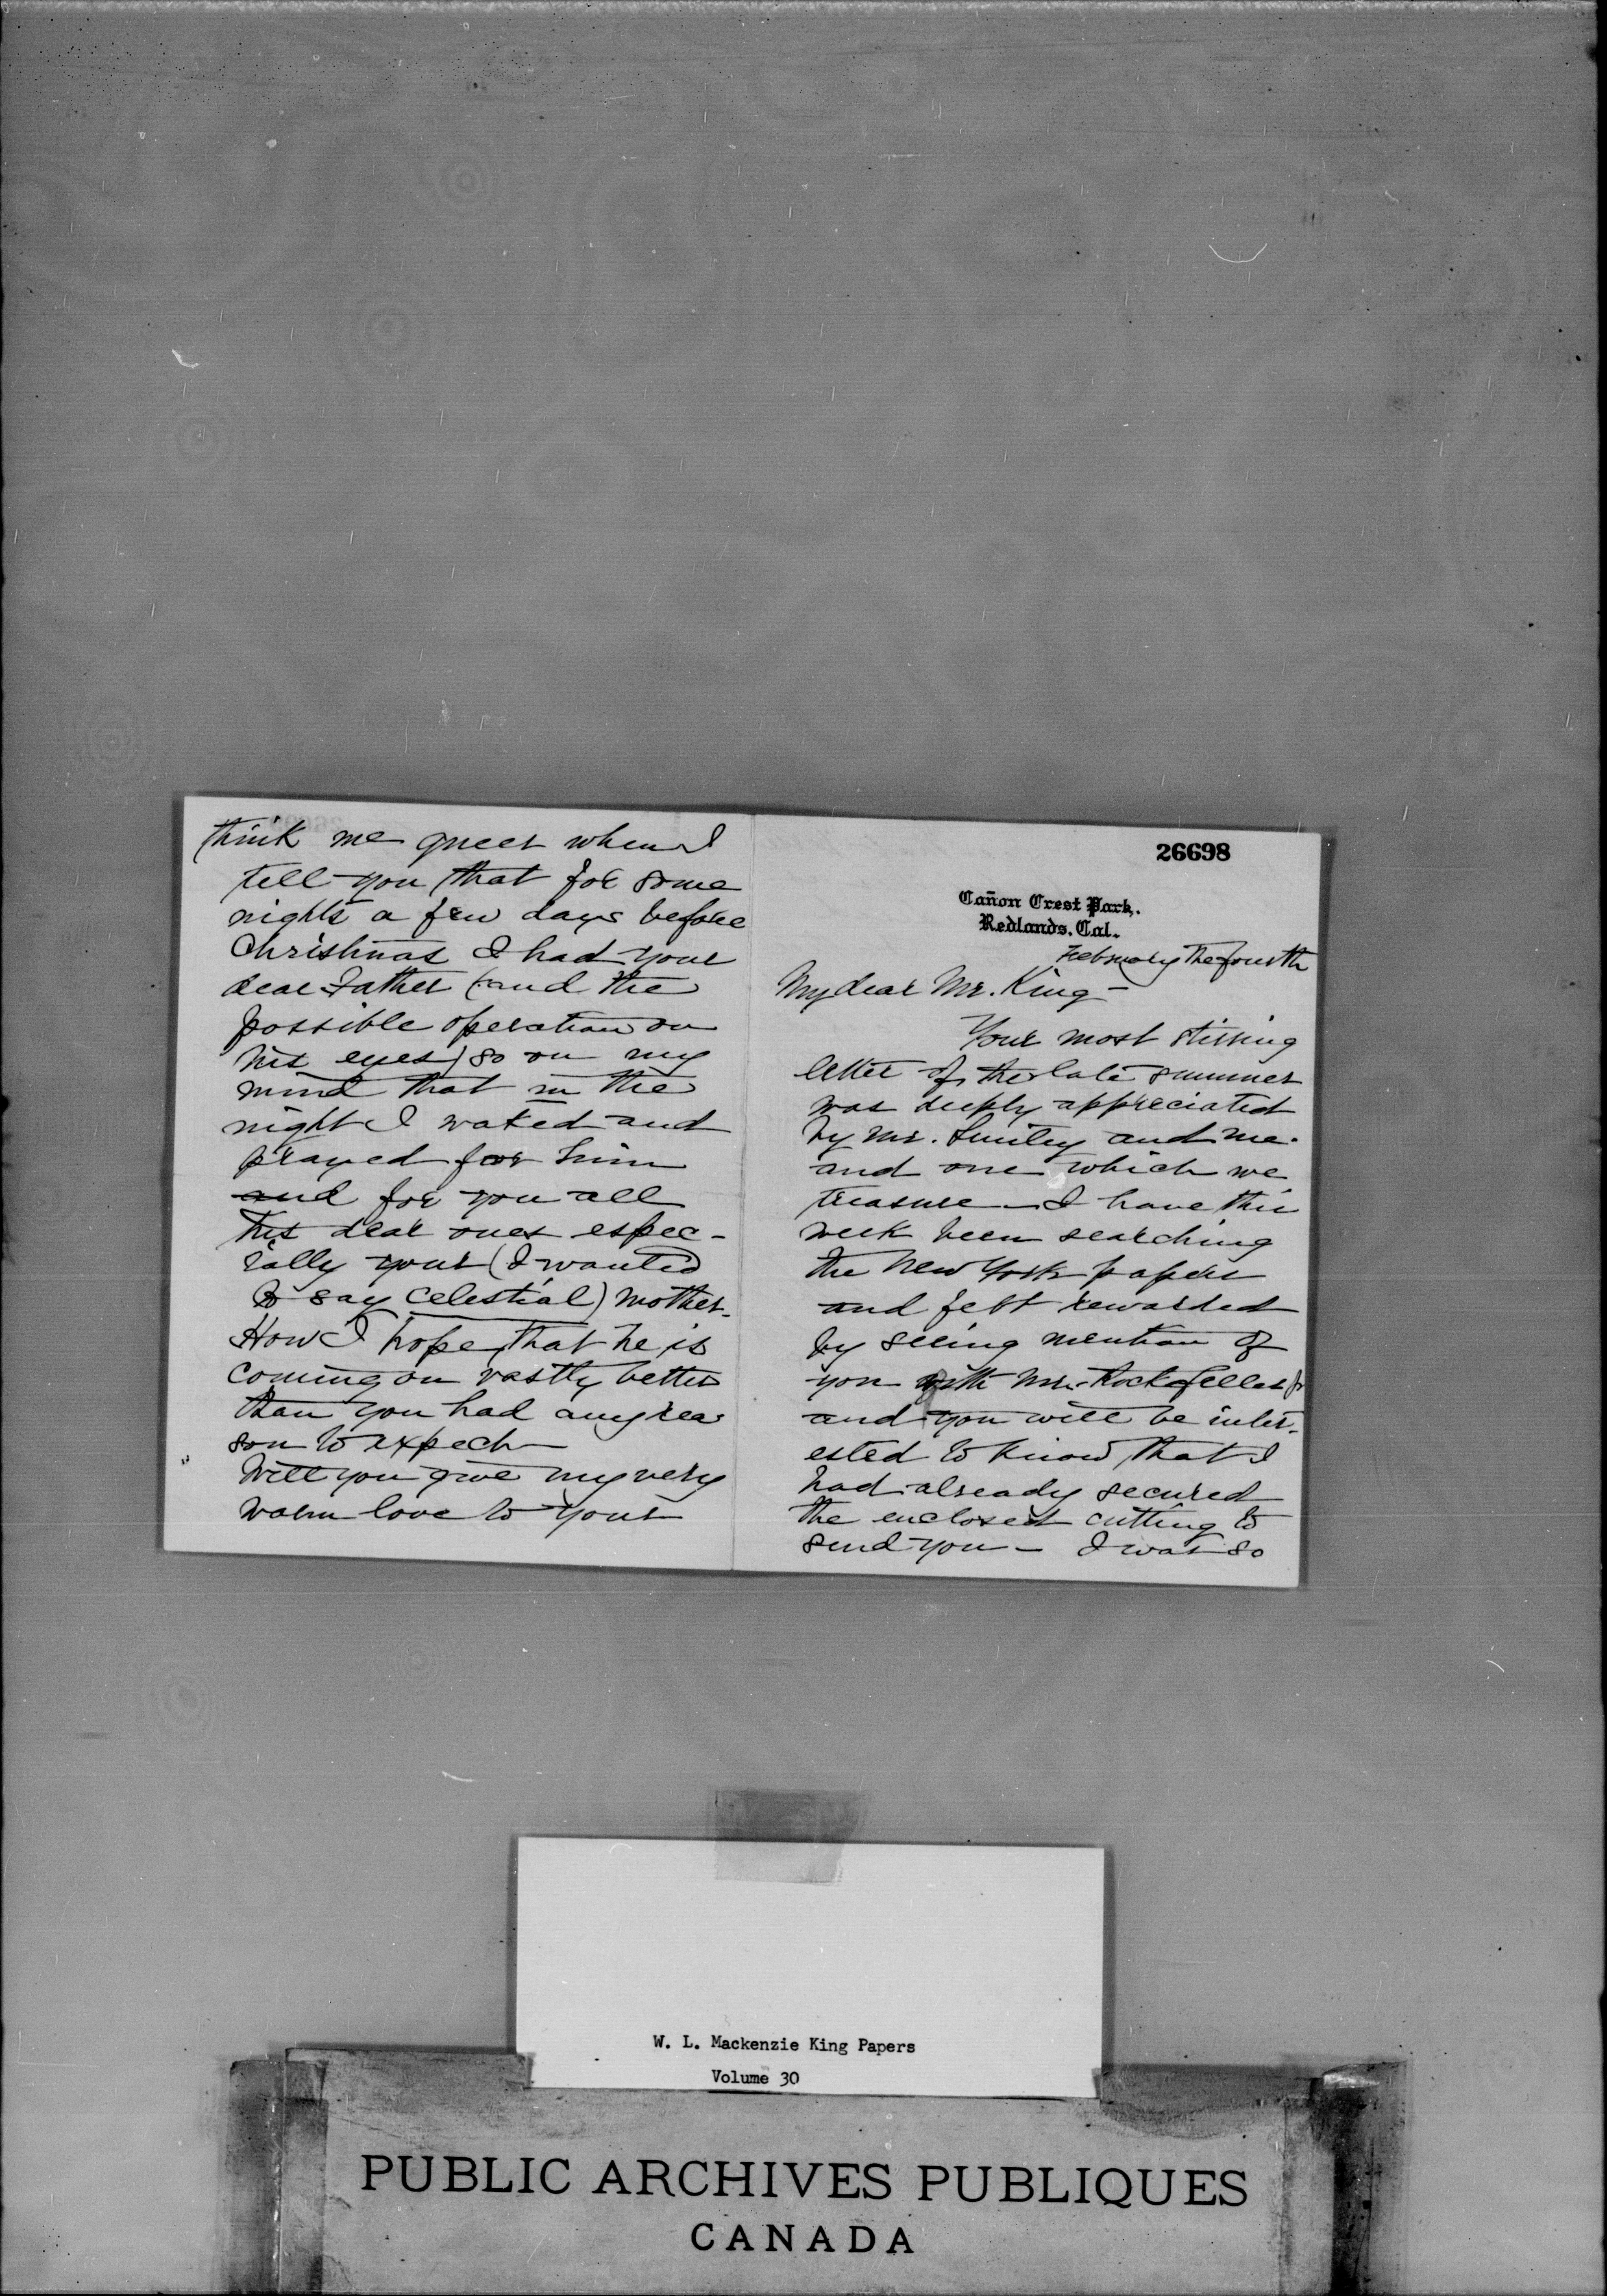 think me queer when I
tell you that for some
nights a few days before
Christmas I had your
dear Father (and the
possible operation on
his eyes) so on my
mind that in the
night I waked and
prayed for him
and for you all
his dear ones espec-
ially your (I wanted
to say celestial) mother.
How I hope that he is
coming on vastly better
than you had any rea
son to expect
Will you give my very
warm love to your
26698
Cañon Crest Park,
Redlands, Cal.
February the fourth
My dear Mr. King -
Your most stirring
letter of the late summer
was deeply appreciated
by Mr. Smiley and me.
and one which we
treasure - I have this
week been searching
the New York papers
and felt rewarded
by seeing mention of
you with Mr. Rockefeller Jr
and you will be inter-
ested to know that I
had already secured
the enclosed cutting to
send you - I was so
W. L. Mackenzie King Papers
Volume 30
PUBLIC ARCHIVES PUBLIQUES
CANADA